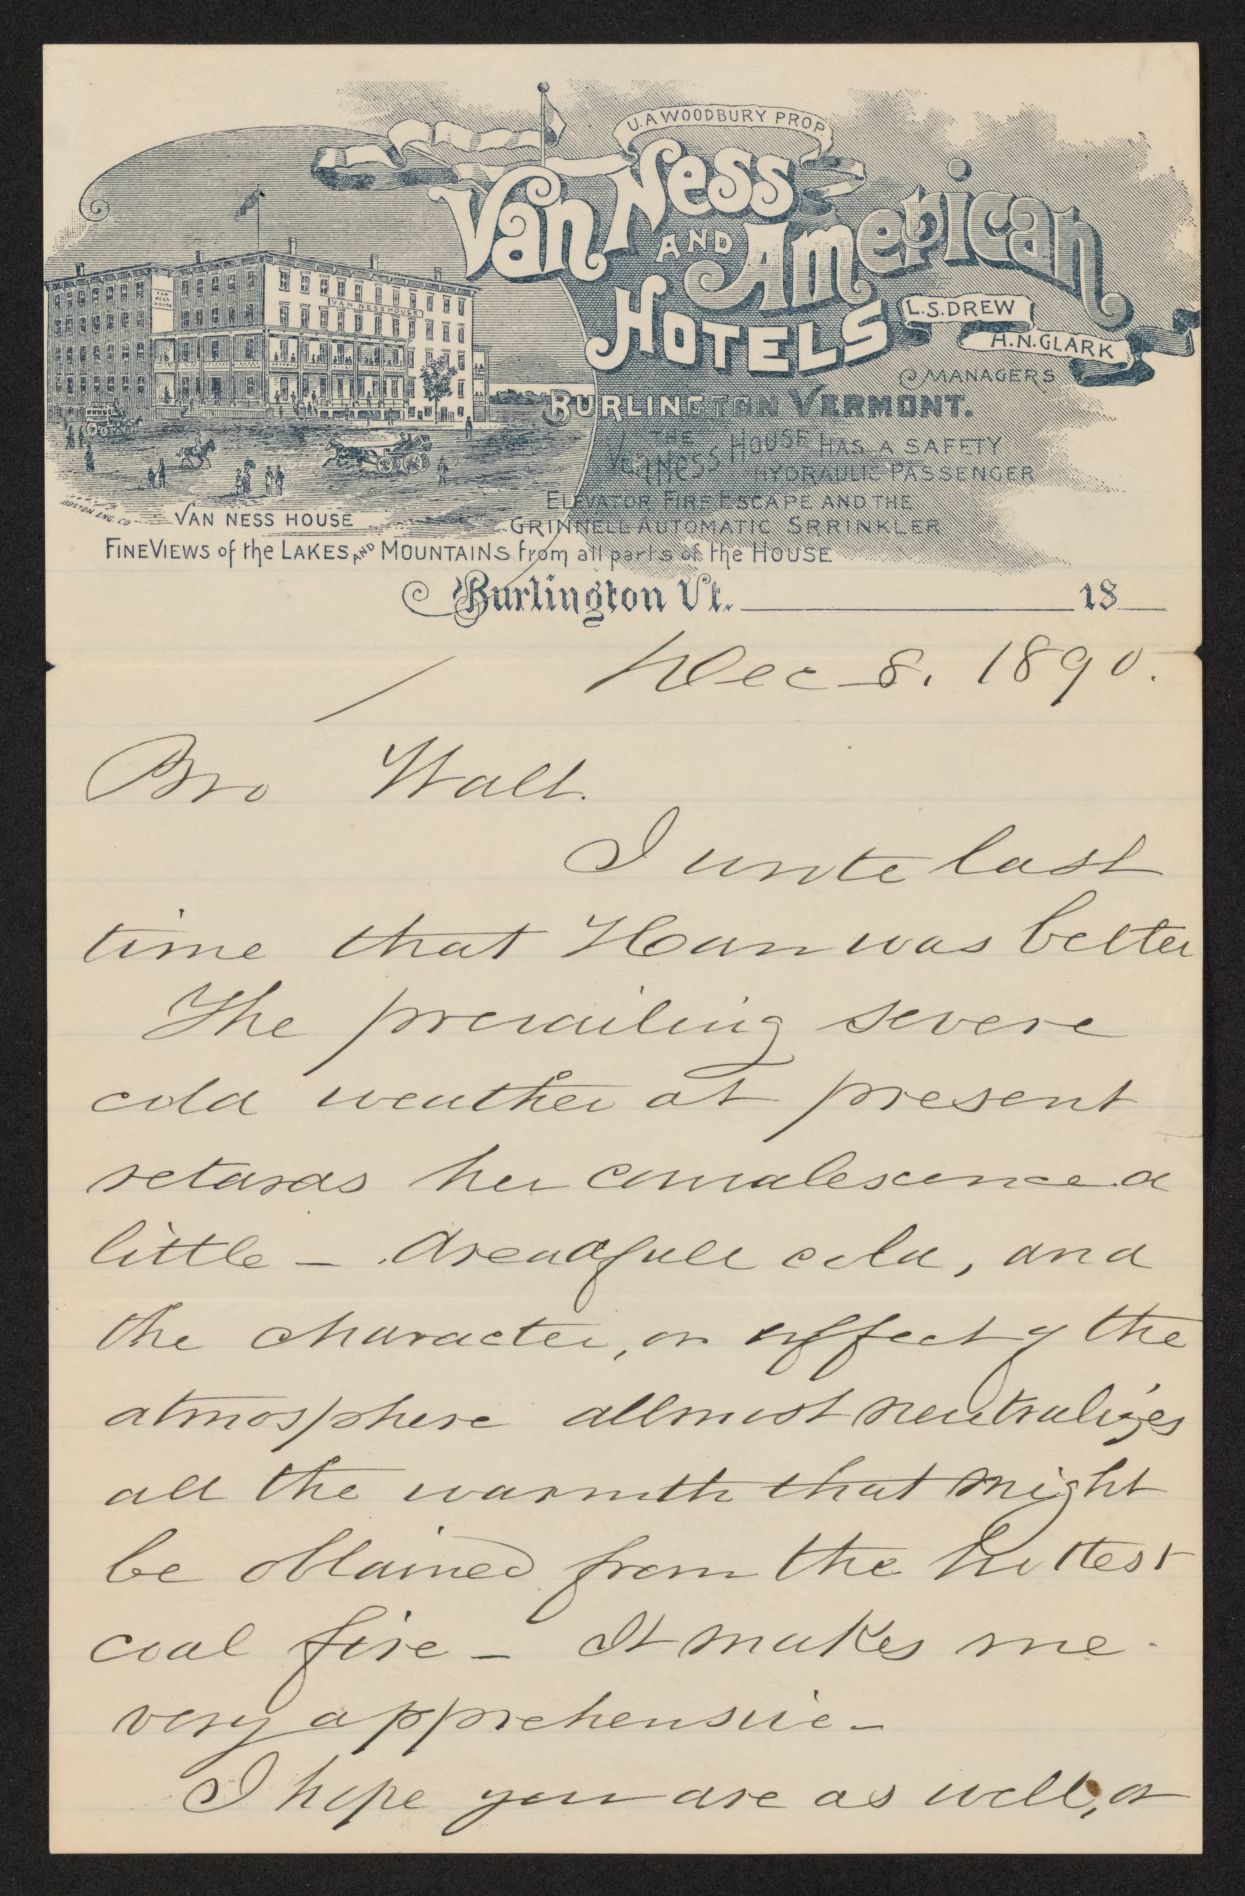 U. A WOODBURY PROP.
Van Ness
AND American
HOTELS
L.S. DREW
H.N. CLARK
MANAGERS
BURLINGTON VERMONT.
THE
VAN NESS HOUSE HAS A SAFETY
HYDRAULIC PASSENGER
ELEVATOR FIRE ESCAPE AND THE
GRINNELL AUTOMATIC SRRINKLER
VAN NESS HOUSE
VAN NESS HOUSE
BOSTON ENG. CO
VAN NESS HOUSE
FINE VIEWS of the LAKES AND MOUNTAINS from all parts of the HOUSE
Burlington Vt. 18
Dec 8. 1890.
Bro Walt.
I wrote last
time that Han was better
The prevailing severe
cold weather at present
retards her convalescence a
little – dreadfull cold, and
the character, or effect of the
atmosphere allmost neutralizes
all the warmth that might
be obtained from the hottest
coal fire – It makes me
very apprehensive –
I hope you are as well, or